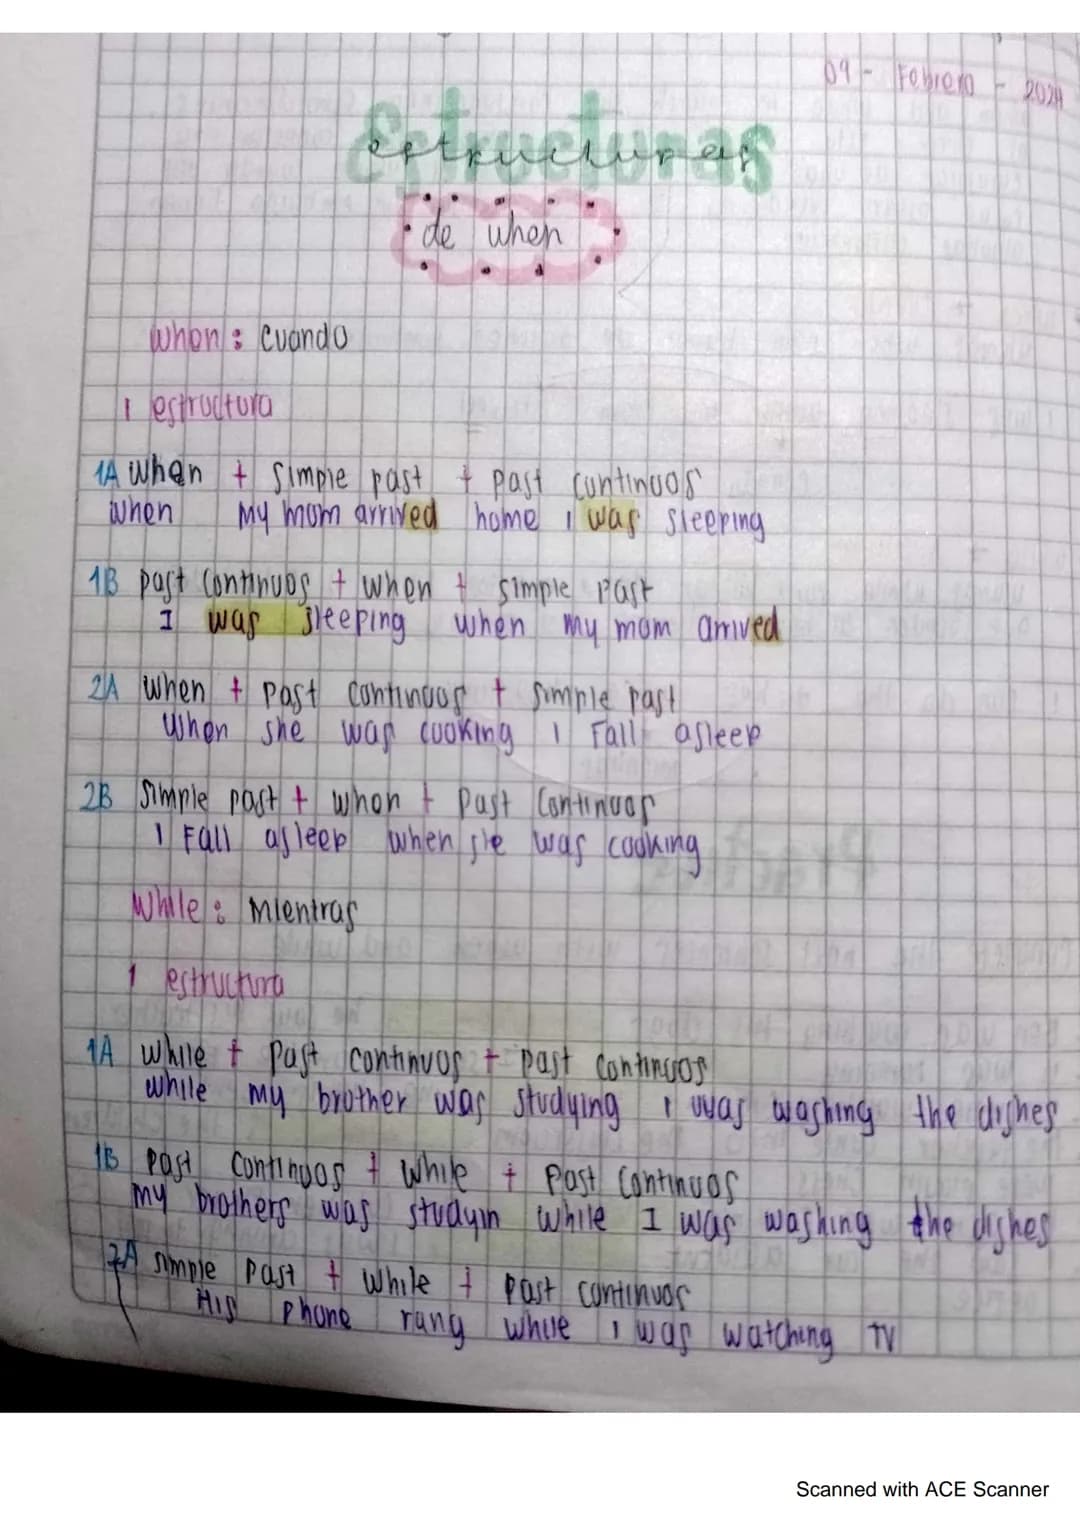 09 - Febrero - 2024
Estructuras
de when
when : Cuando
1 estructura
1A When + Simple past + past continuos
when my mom arrived home I was sleeping
1B past continuos + when + simple Past
I was sleeping when my mom arrived
2A when + Past continuos + simple past
When she was cooking I Fall asleep
2B Simple past + when + Past Continuos
I Fall asleep when she was cooking
While : Mientras
1 estructura
1A while + Past continuos + past continuos
while my brother was studying I was washing the dishes
1B Past Continuos + While + Past Continuos
my brothers was studyin while I was washing the dishes
2A simple Past + While + past continuos
His Phone rang while I was watching TV
Scanned with ACE Scanner